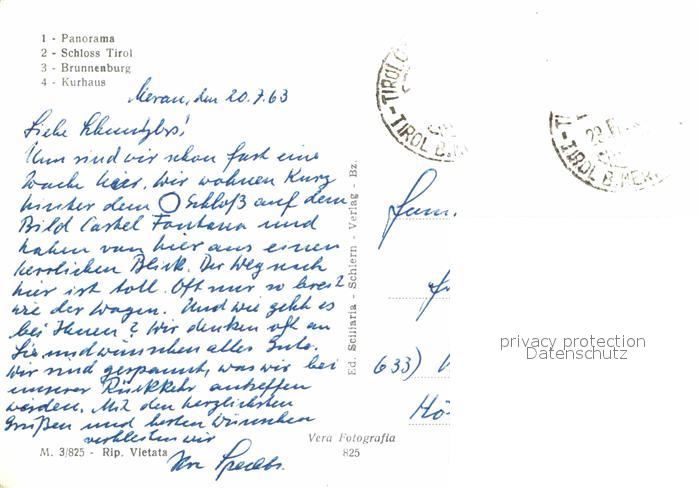 1 - Panorama
2 - Schloss Tirol
3 - Brunnenburg
4 - Kurhaus
Meran, den 20.7.63
Liebe
Nun sind wir schon fast eine
Woche hier. Wir wohnen kurz
hinter dem Schloß auf dem
Bild Castel Fontana und
haben von hier aus einen
herrlichen Blick. Der Weg nach
hier ist toll. Oft nur so breit
wie der Wagen. Und wie geht es
bei Ihnen? Wir denken oft an
Sie und wünschen alles Gute.
Wir sind gespannt, was wir bei
unserer Rückkehr antreffen
werden. Mit den herzlichsten
Grüßen und besten Wünschen
verbleiben wir
Ihre
M. 3/825 - Rip. Vietata
Ed. Sciliaria - Schlern - Verlag - Bz.
Vera Fotografia
825
TIROLO
TIROL B. MER
TIROL B. MER
Fam.
633)
Hö
privacy protection
Datenschutz